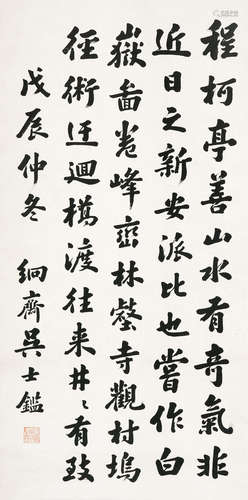 程柯亭善山水有奇氣非
近日之新安派比也嘗作白
嶽畵卷峰巒林壑寺觀村塢
徑術迂迴橋渡往来井〻有致
戊辰仲冬 絅齋吳士鑑